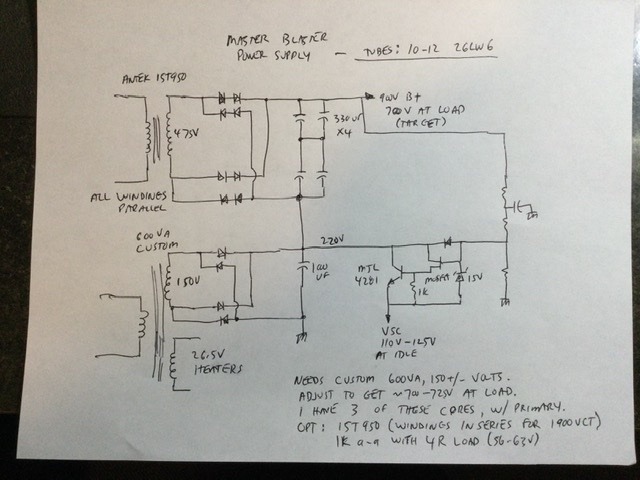 MASTER BLASTER
POWER SUPPLY — TUBES: 10-12 26LW6
ANTEK 15T950
900V B+
700V AT LOAD
(TARGET)
330UF
X4
475V
ALL WINDINGS
PARALLEL
600VA
CUSTOM
220V
150V
100
UF
MJL
4281
1K
15V
VSC
110V-125V
AT IDLE
26.5V
HEATERS
NEEDS CUSTOM 600VA, 150+/- VOLTS.
ADJUST TO GET ~700-725V AT LOAD.
I HAVE 3 OF THESE CORES, W/ PRIMARY.
OPT: 15T950 (WINDINGS IN SERIES FOR 1900VCT)
1K a-a WITH 4R LOAD (56-63V)